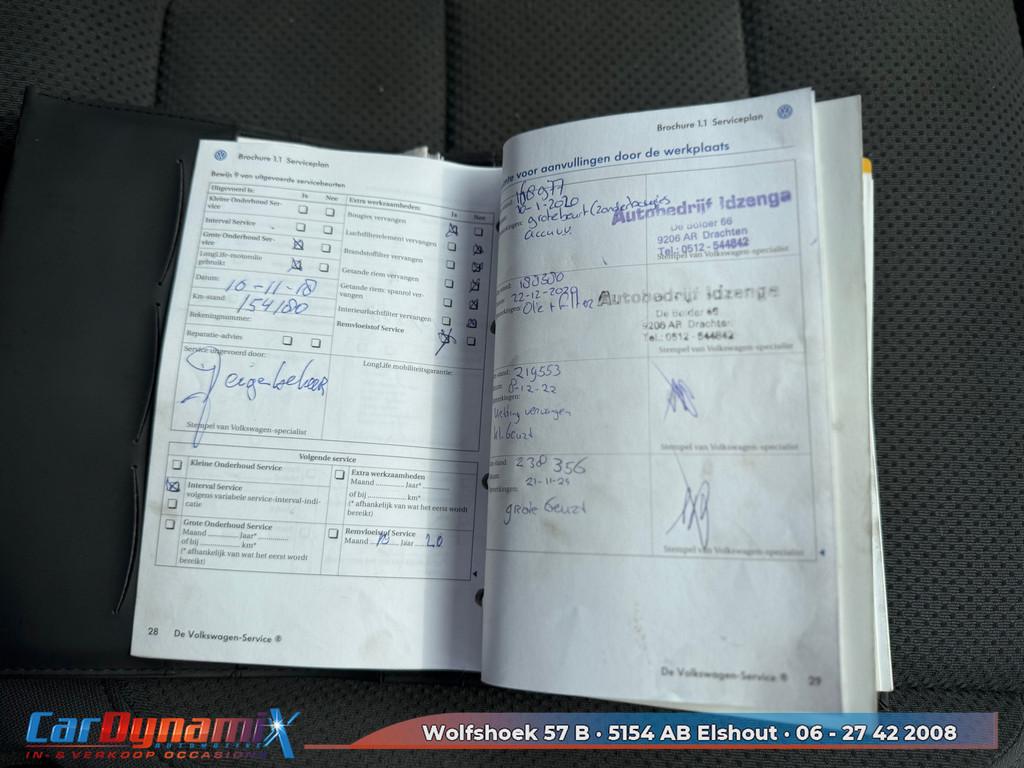 Brochure 1.1 Serviceplan
Bewijs 9 van uitgevoerde servicebeurten
Uitgevoerd is: Ja Nee
Kleine Onderhoud Ser-
vice
Interval Service
Grote Onderhoud Ser-
vice
LongLife-motorolie
gebruikt
Datum: 16-11-18
Km-stand: 154180
Rekeningnummer:
Reparatie-advies
Service uitgevoerd door:
eigen beheer
Stempel van Volkswagen-specialist
Extra werkzaamheden: Ja Nee
Bougies vervangen
Luchtfilterelement vervangen
Brandstoffilter vervangen
Getande riem vervangen
Getande riem: spanrol ver-
vangen
Interieurluchtfilter vervangen
Remvloeistof Service
LongLife mobiliteitsgarantie:
Volgende service
Kleine Onderhoud Service
Interval Service
volgens variabele service-interval-indi-
catie
Grote Onderhoud Service
Maand ........... Jaar* ...............
of bij .................. km*
(* afhankelijk van wat het eerst wordt
bereikt)
Extra werkzaamheden
Maand ........... Jaar* ...........
of bij .................. km*
(* afhankelijk van wat het eerst wordt
bereikt)
Remvloeistof Service
Maand Jaar 20
28 De Volkswagen-Service ®
Brochure 1.1 Serviceplan
voor aanvullingen door de werkplaats
10-1-2020
grote beurt (zonder bougies
accu
Autobedrijf Idzenga
De Bolder 66
9206 AR Drachten
Tel.: 0512 - 544842
Stempel van Volkswagen-specialist
22-12-2020
Olie + filter
Autobedrijf Idzenga
De Bolder 66
9206 AR Drachten
Tel.: 0512 - 544842
Stempel van Volkswagen-specialist
219553
8-12-22
vervangen
kl. beurt
Stempel van Volkswagen-specialist
238 356
21-11-24
grote beurt
Stempel van Volkswagen-specialist
De Volkswagen-Service ® 29
CarDynamiX
AUTOMOTIVE
IN- & VERKOOP OCCASIONS
Wolfshoek 57 B • 5154 AB Elshout • 06 - 27 42 2008